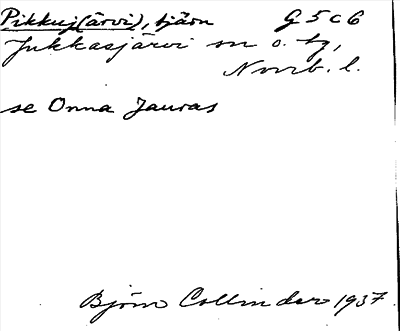 Pikkuj(ärvi), tjärn G 5 c 6
Jukkasjärvi sn o. tg,
Norrb. l.
se Onna Jauras
Björn Collinder 1937.